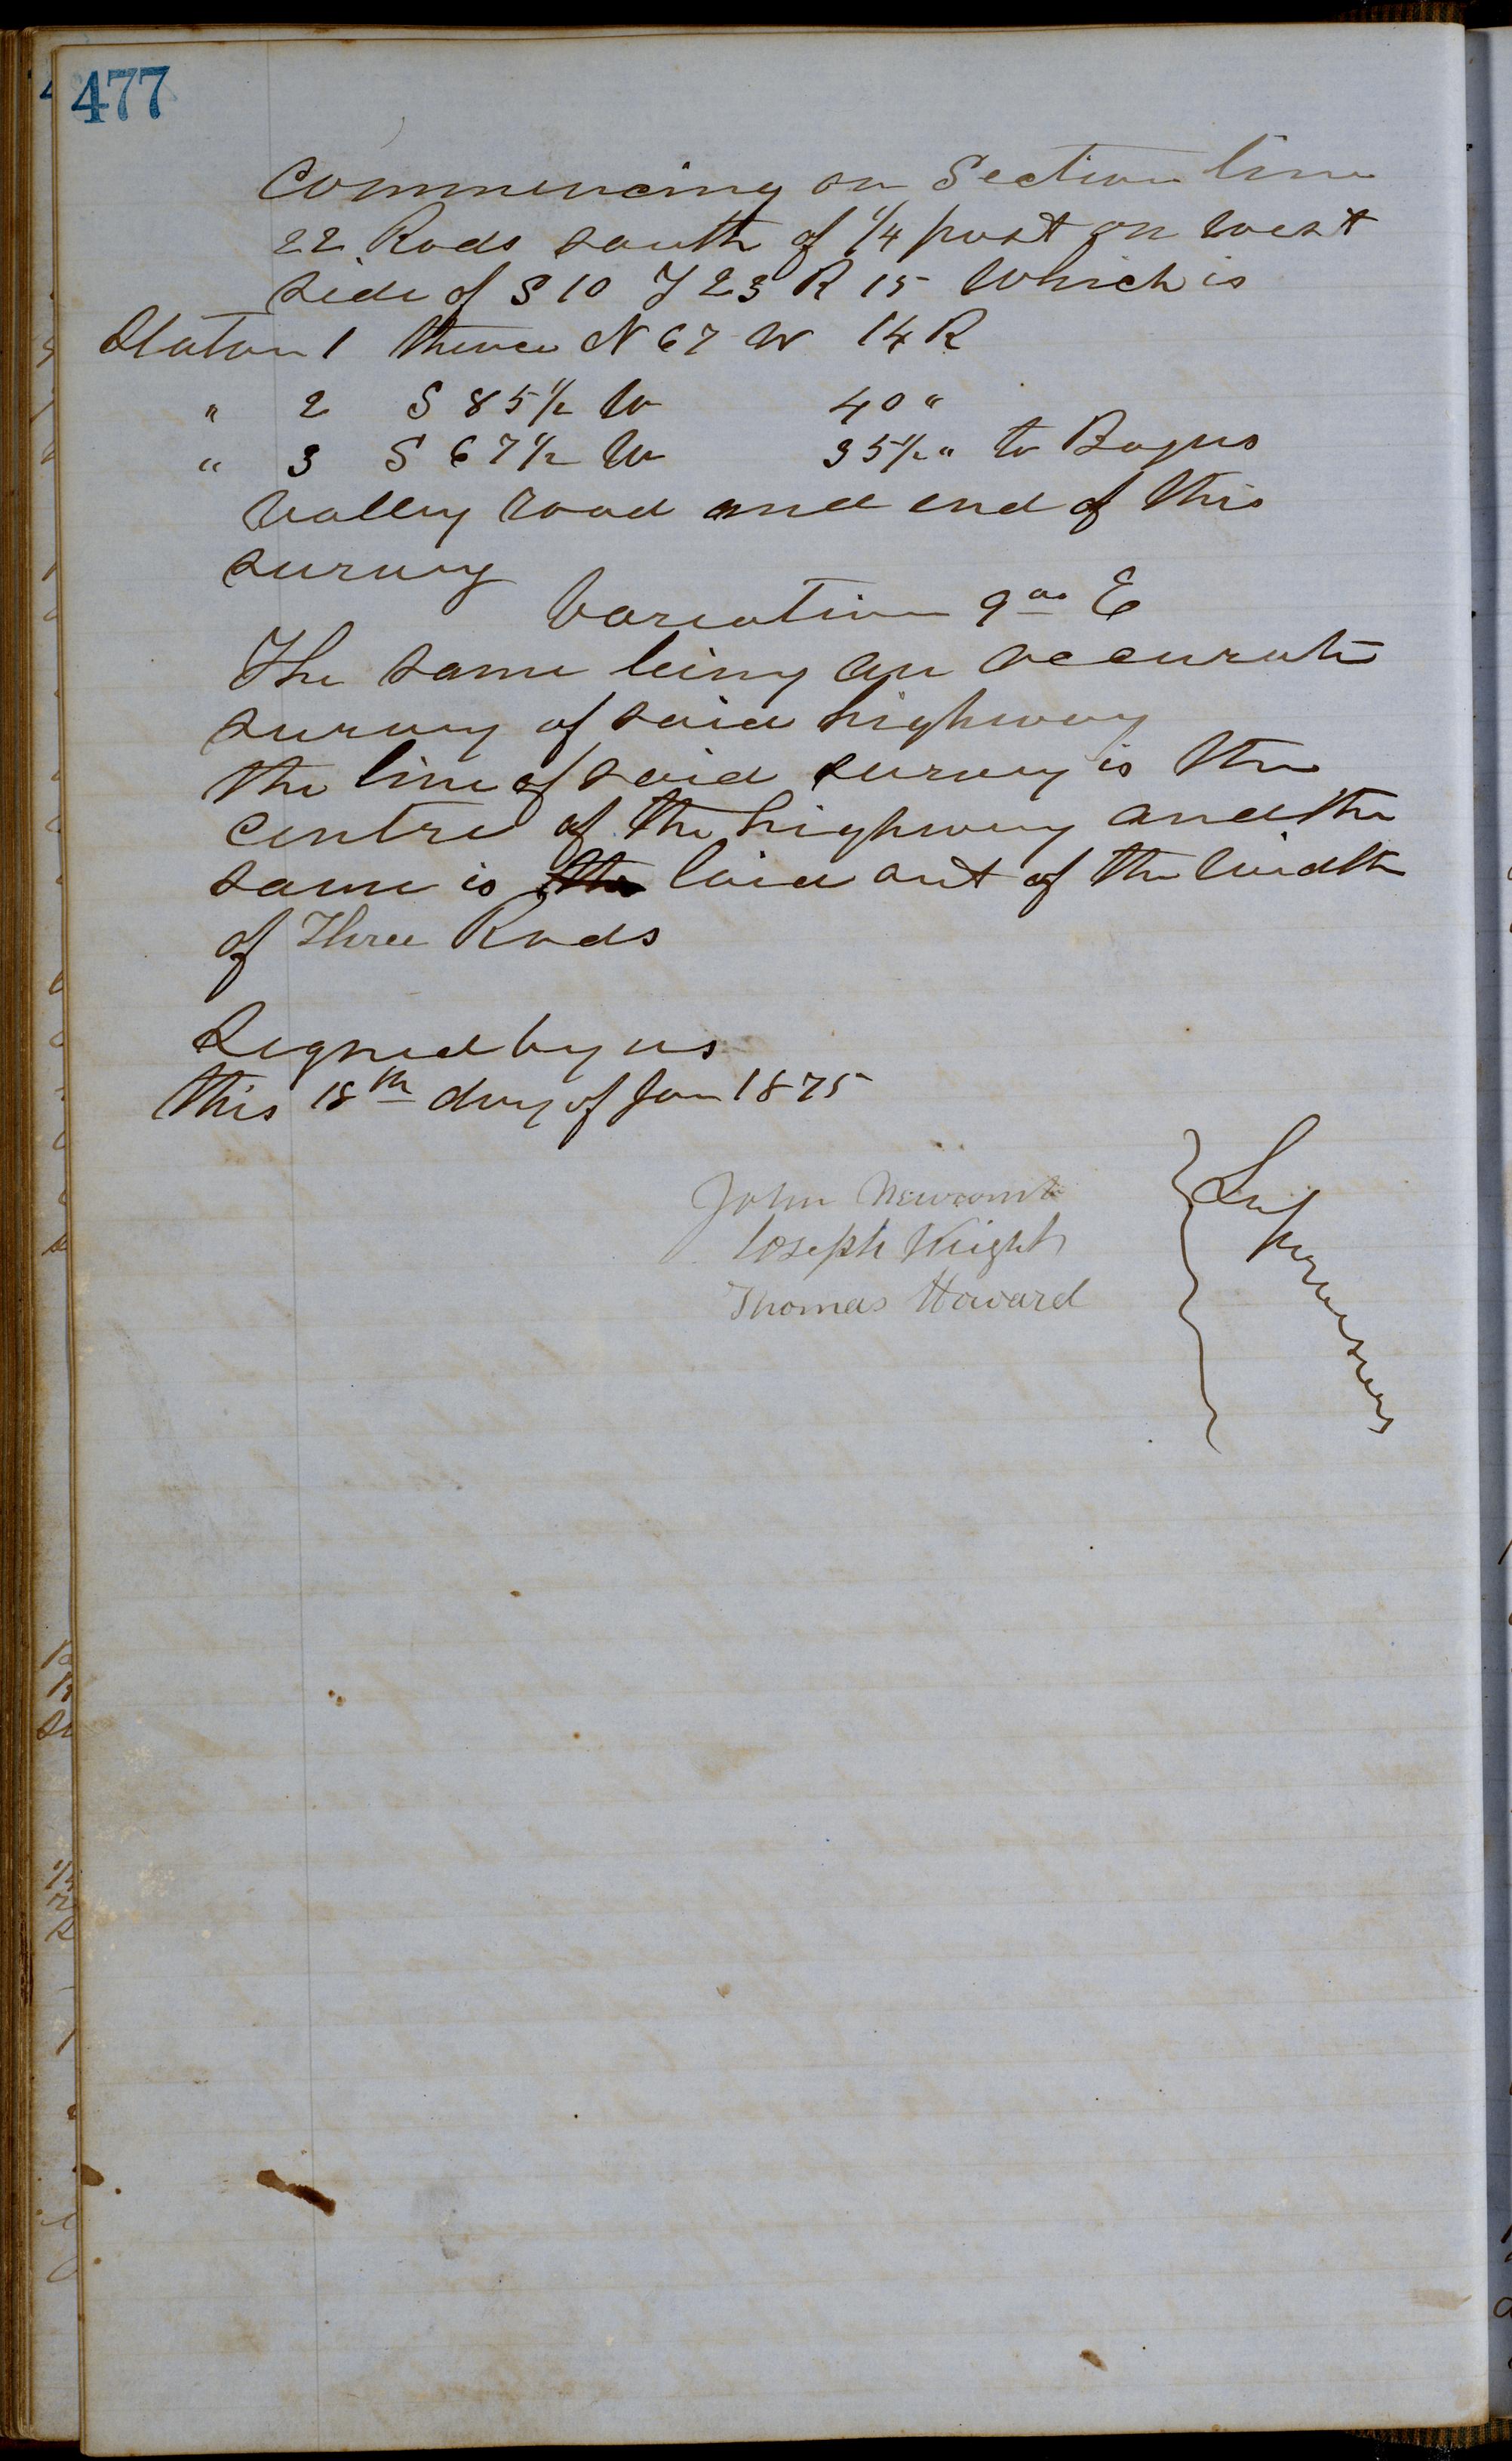 477
Commencing on Section line
22 Rods south of 1/4 post on west
side of S 10 T 23 R 15 Which is
Staton 1 thence N 67 W 14 R
" 2 S 85 1/2 W 40 "
" 3 S 67 1/2 W 35 1/2 " to Bogus
Valley road and end of this
survey
Variation 9 E
The same being an accurate
survey of said highway
the line of said survey is the
centre of the highway and the
same is the laid out of the width
of Three Rods
Signed by us
this 18th day of Jan 1875
John Newcomb
Joseph Knight
Thomas Howard
Supervisors